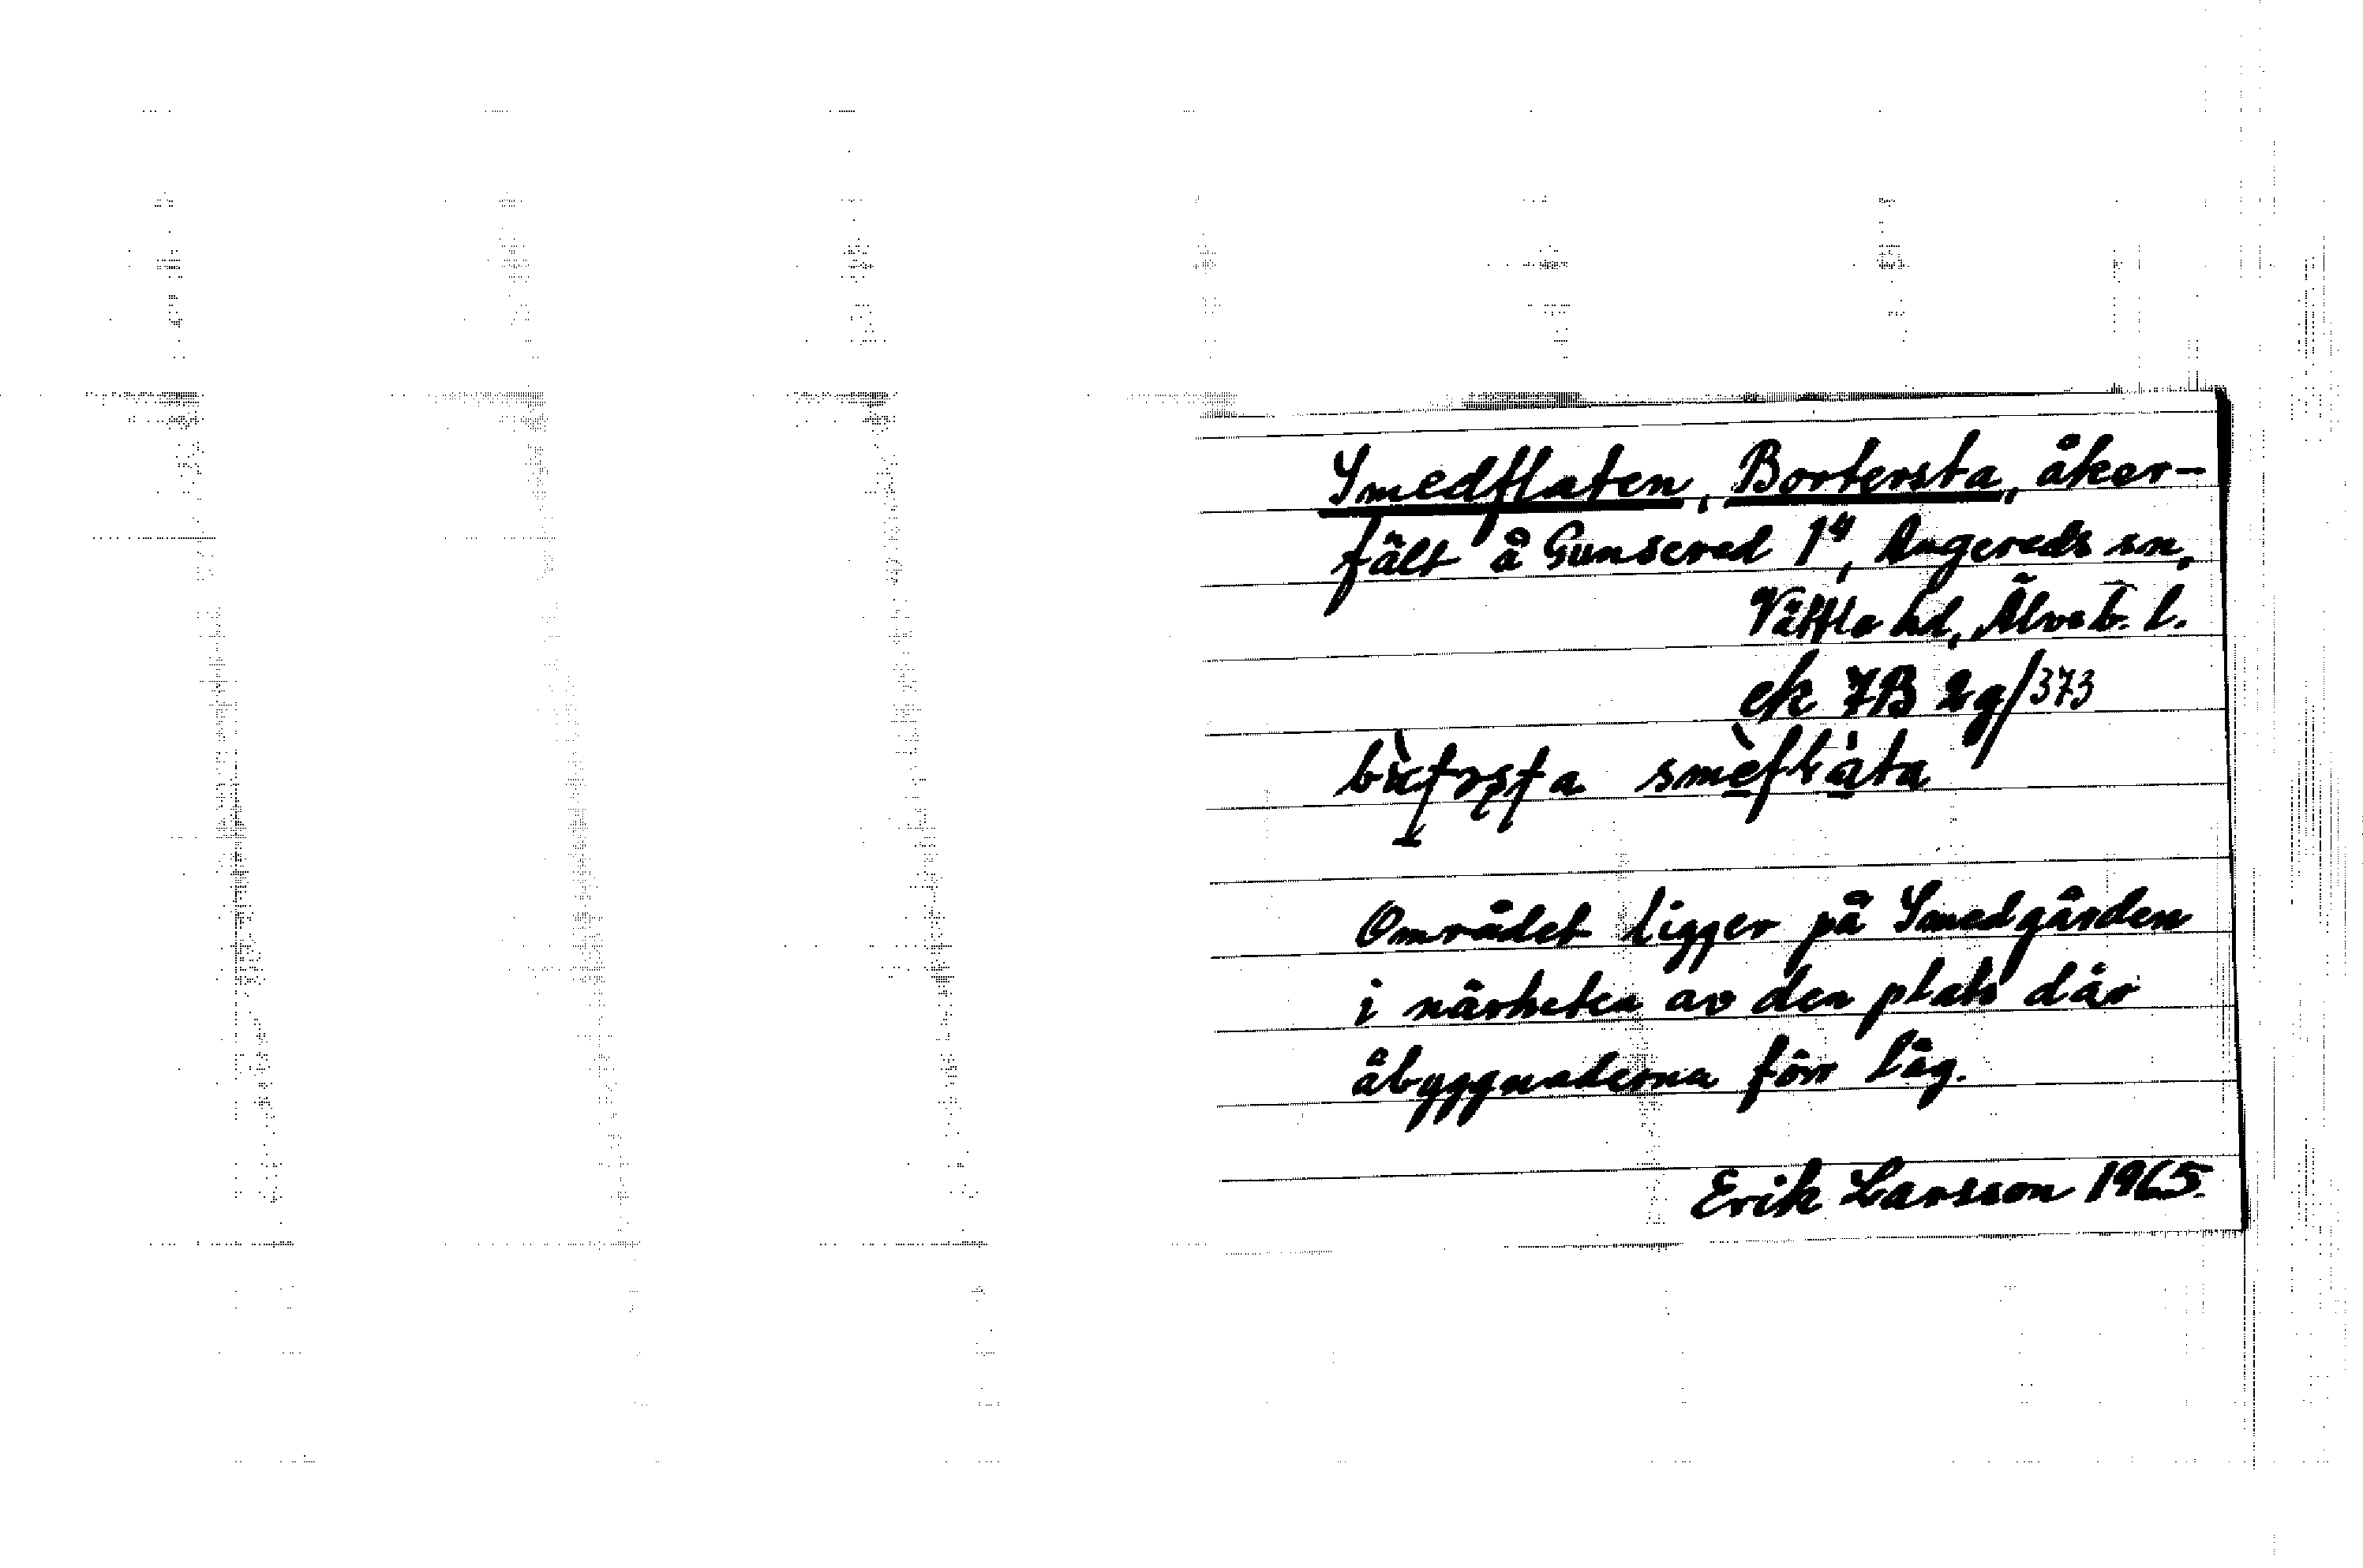 Smedflaten, Bortersta, åker-
fält å Gunsered 1⁴, Angereds sn,
Vättle hd, Älvsb. l.
ek 7B 2g/373
Området ligger på Smedgården
i närheten av den plats där
åbyggnaderna förr låg.
Erik Larsson 1965.